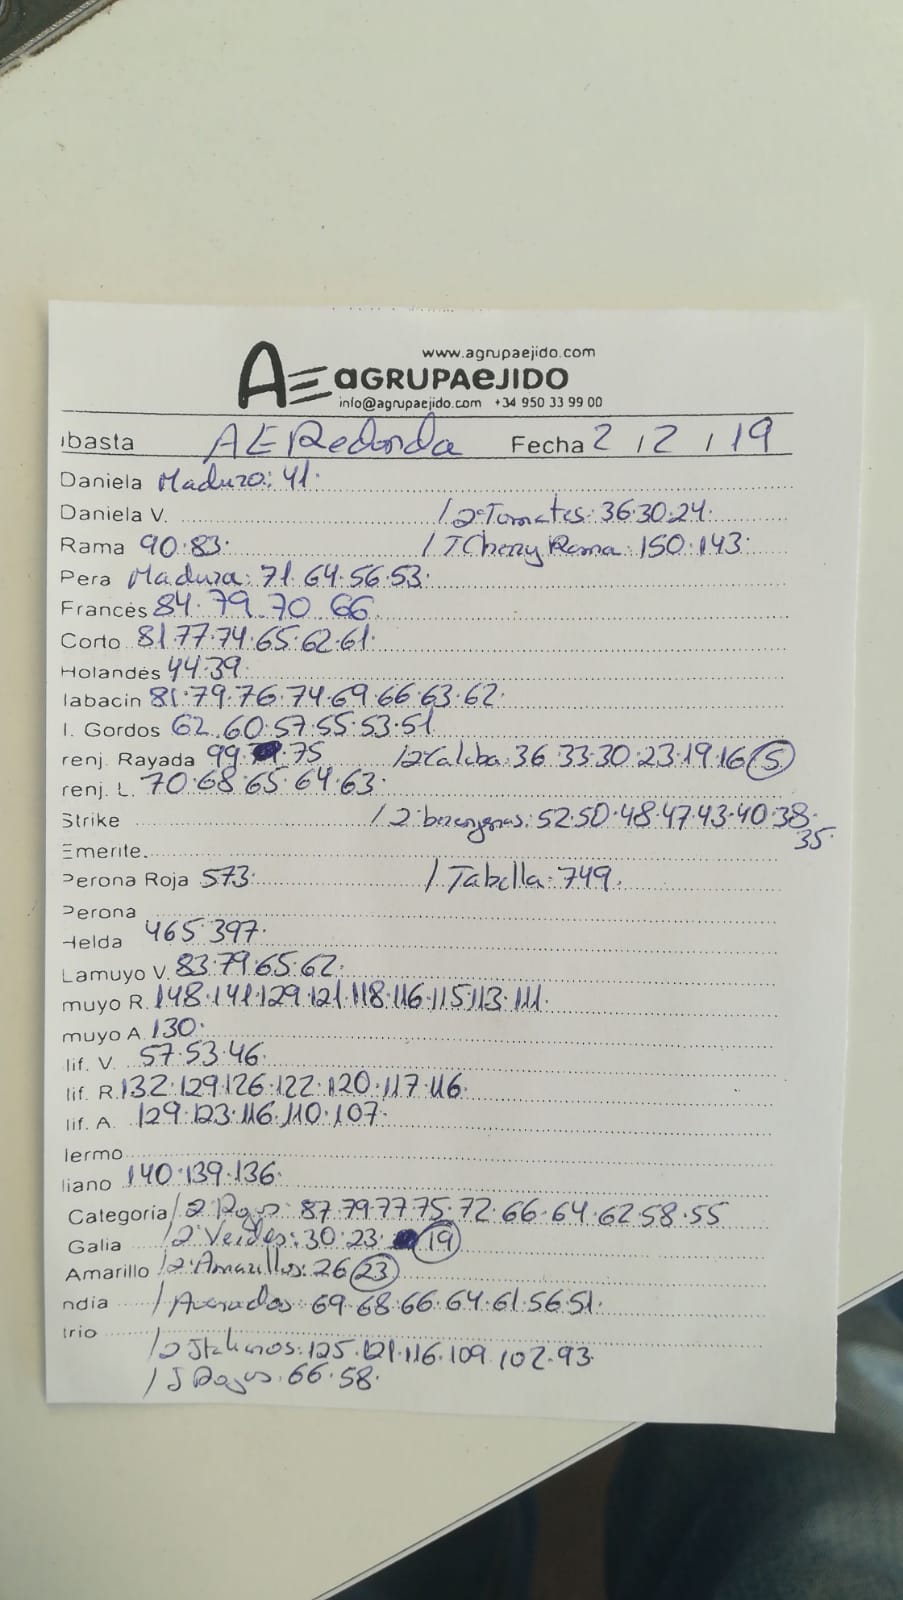 www.agrupaejido.com
AE aGRUPAeJIDO
info@agrupaejido.com +34 950 33 99 00
ubasta AE Redonda Fecha 2 / 2 / 19
Daniela Maduro: 41.
Daniela V. / 2ªTomates: 36.30.24.
Rama 90.83. / TCherry Rama: 150.143.
Pera Madura: 71.64.56.53.
Francés 84.79.70.66.
Corto 81.77.74.65.62.61.
Holandés 44.39.
labacín 81.79.76.74.69.66.63.62.
l. Gordos 62.60.57.55.53.51.
renj. Rayada 99. 75 /2ªCalaba: 36.33.30.23.19.16 5
renj. L. 70.68.65.64.63.
Strike / 2ªberenjenas: 52.50.48.47.43.40.38.
35.
Emerite.
Perona Roja 573. / Tabella: 749.
Perona
Helda 465.397.
Lamuyo V. 83.79.65.62.
muyo R. 148.141.129.121.118.116.115.113.111.
muyo A. 130.
lif. V. 57.53.46.
lif. R. 132.129.126.122.120.117.116.
lif. A. 129.123.116.110.107.
lermo
liano 140.139.136.
Categoría / 2ªRojos: 87.79.77.75.72.66.64.62.58.55
Galia /2ªVerdes: 30.23. 19
Amarillo /2ªAmarillos: 26 23
ndia / Asurados: 69.68.66.64.61.56.51.
trio
/2ªItalianos: 125.121.116.109.102.93.
/ J Rojos: 66.58.